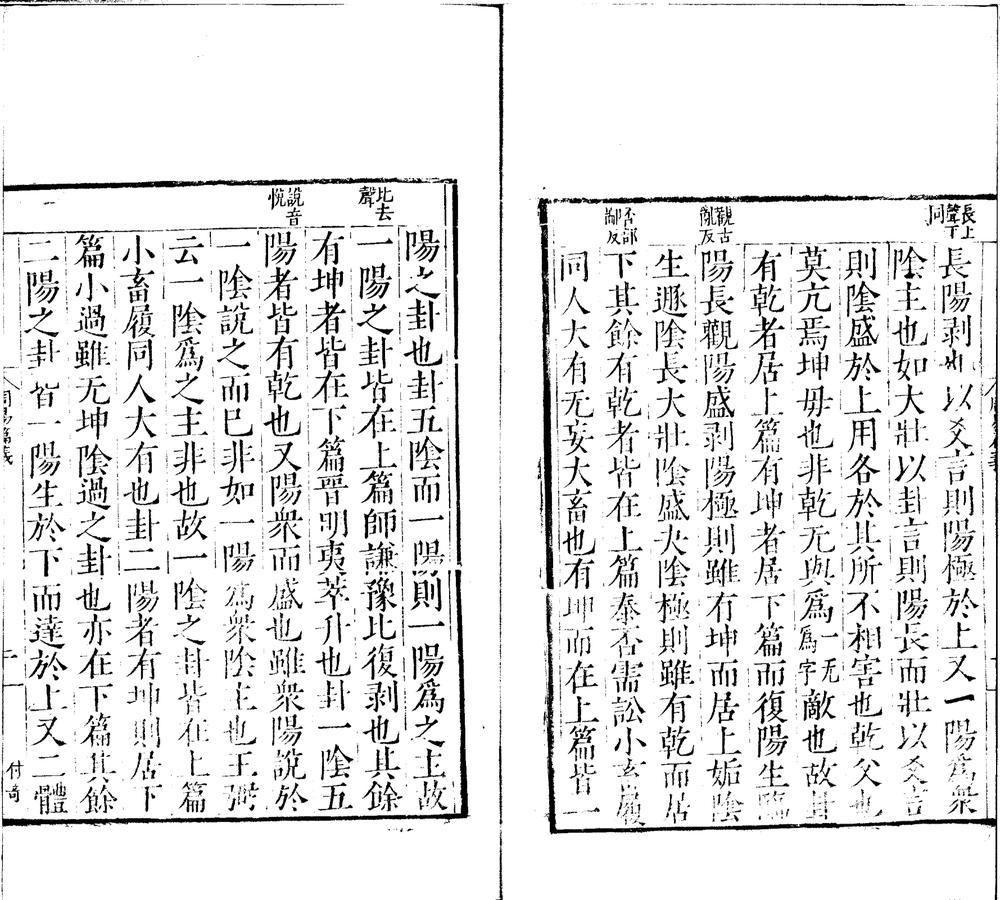 長上聲下同
長陽剥也以爻言則陽極於上又一陽爲衆
陰主也如大壯以卦言則陽長而壯以爻言
則陰盛於上用各於其所不相害也乾父也
莫亢焉坤毋也非乾无與爲一无爲字敵也故
有乾者居上篇有坤者居下篇而復陽生臨
觀古亂反
陽長觀陽盛剥陽極則雖有坤而居上姤陰
生遯陰長大壯陰盛夬陰極則雖有乾而居
否部鄙反
下其餘有乾者皆在上篇泰否需訟小畜履
同人大有无妄大畜也有坤而在上篇皆一
陽之卦也卦五陰而一陽則一陽爲之主故
比去聲
一陽之卦皆在上篇師謙豫比復剥也其餘
有坤者皆在下篇晉明夷萃升也卦一陰五
說音悅
陽者皆有乾也又陽衆而盛也雖衆陽說於
一陰說之而巳非如一陽爲衆陰主也王弼
云一陰爲之主非也故一陰之卦皆在上篇
小畜履同人大有也卦二陽者有坤則居下
篇小過雖无坤陰過之卦也亦在下篇其餘
二陽之卦皆一陽生於下而達於上又二體
周易篇義